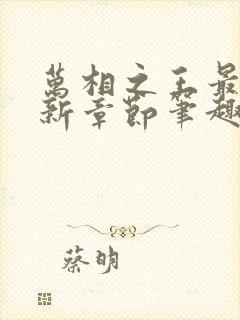 萬相之王最
新章節筆趣
蔡明